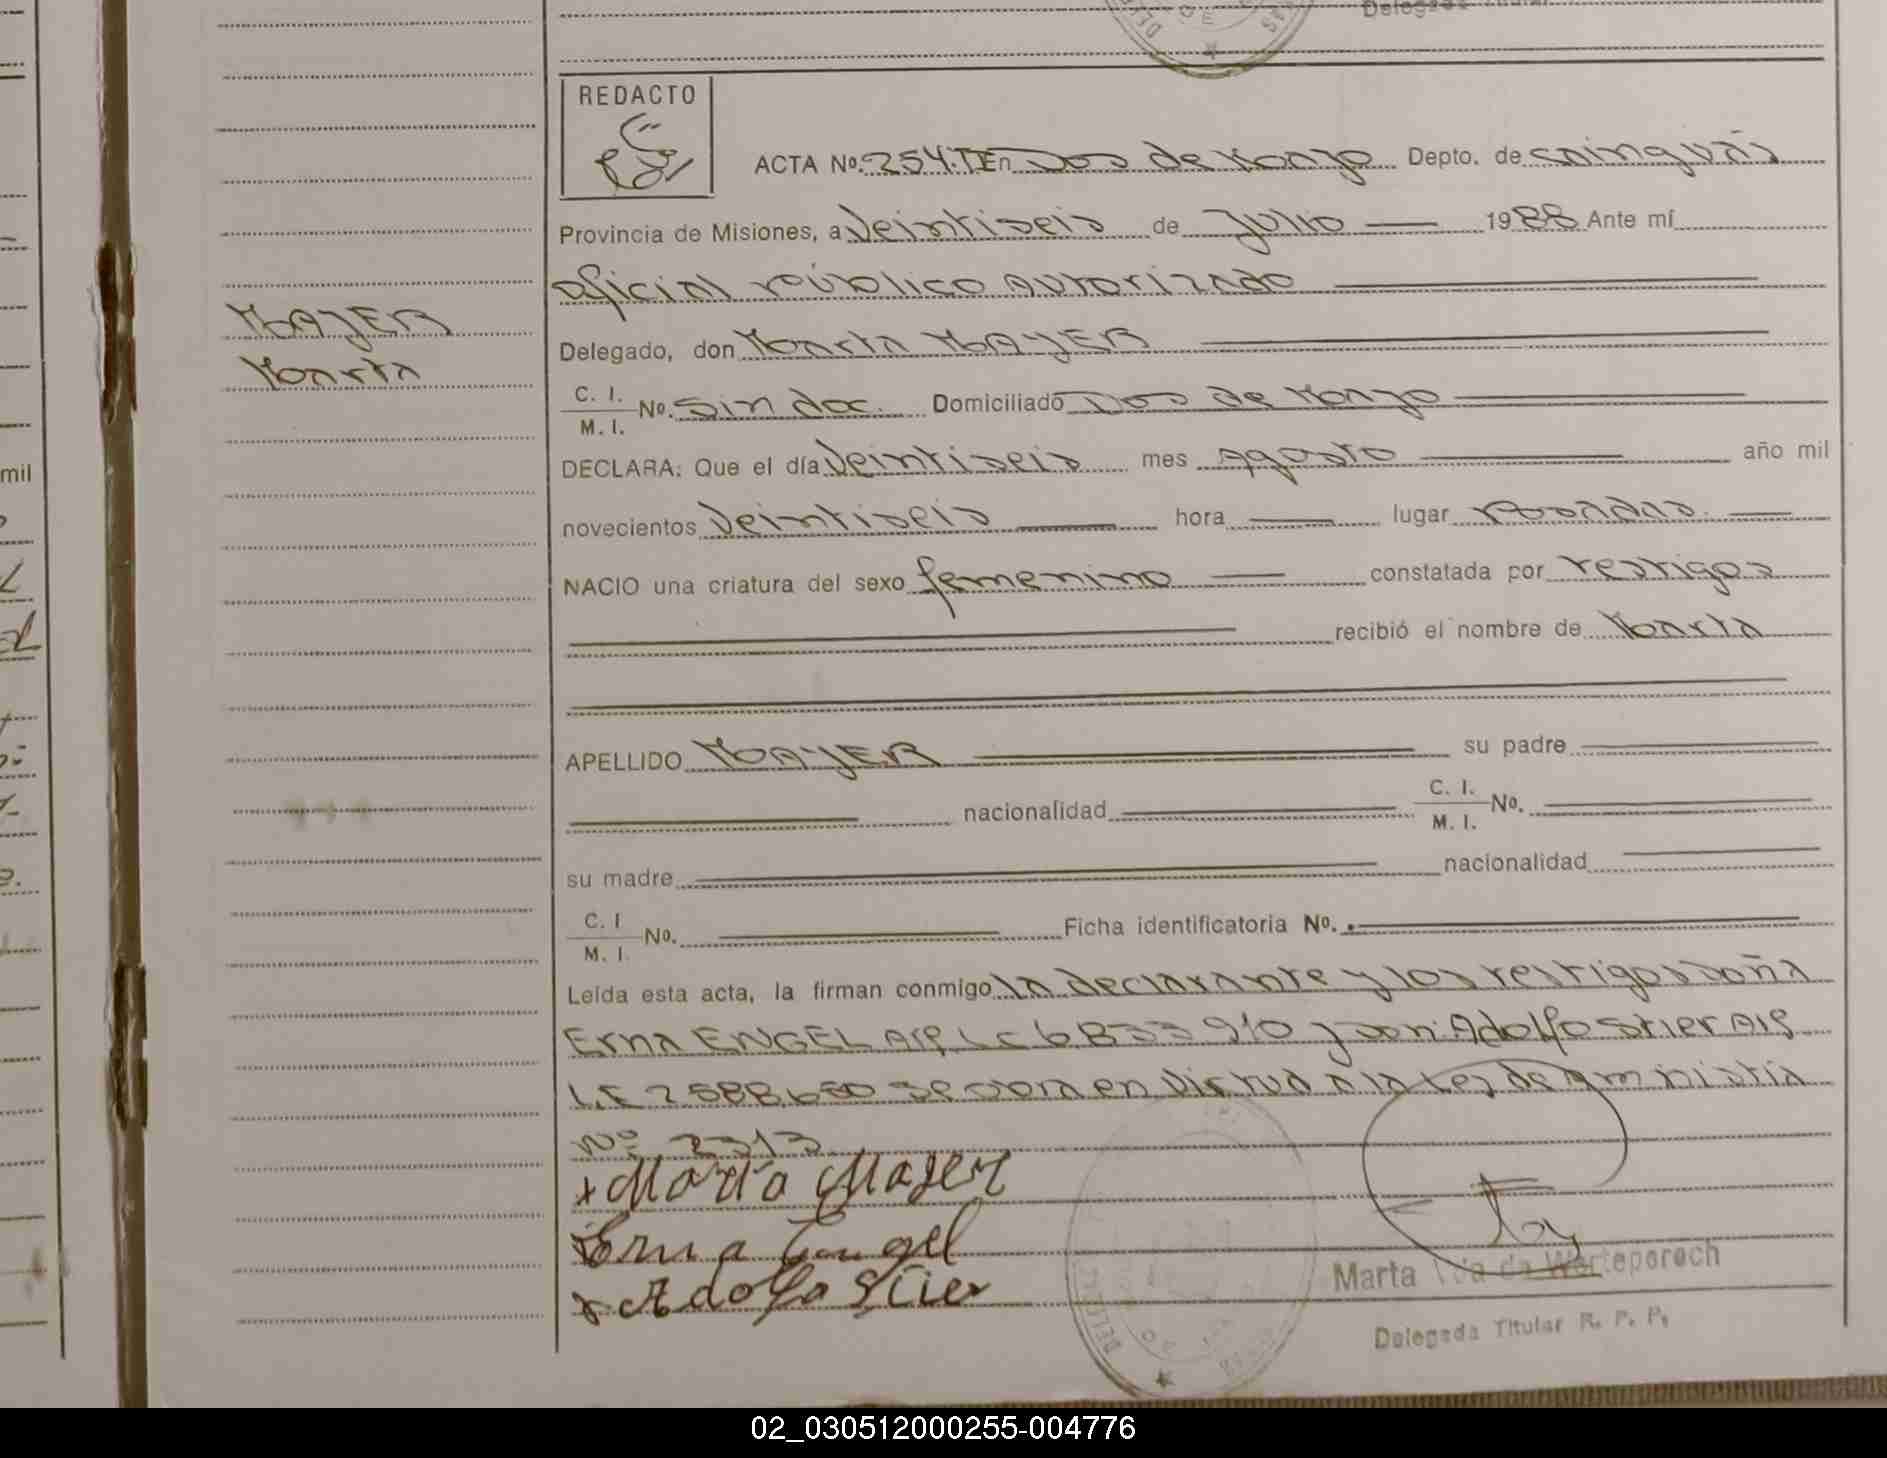 Delegada Titular
REDACTO
ACTA Nº. 254.T. En Dos de Mayo Depto. de Cainguás
Provincia de Misiones, a Veintiseis de Julio 1988 Ante mí
oficial público autorizado
MAYER
Delegado, don Marta MAYER
Marta
C. I.
M. I. Nº. Sin doc. Domiciliado Dos de Mayo
DECLARA: Que el día Veintiseis mes Agosto año mil
novecientos Veintiseis hora lugar
NACIO una criatura del sexo femenino constatada por testigos
recibió el nombre de Marta
APELLIDO MAYER su padre
nacionalidad C. I.
M. I. Nº.
su madre nacionalidad
C. I
M. I. Nº. Ficha identificatoria Nº.
Leída esta acta, la firman conmigo la declarante y los testigos doña
Erna ENGEL Arg. LC 6833910 y don: Adolfo Stier Arg.
L.E 7588.650 Se en Virtud a la Ley de Amnistía
Nº 2313
x Marta Mayer
Erna Engel
x Adolfo Stier
Marta Vda de Werteporoch
Delegada Titular R. P. P.
mil
02_030512000255-004776